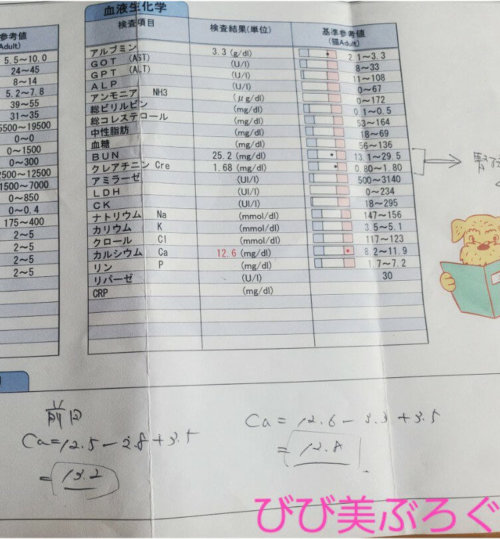 血液生化学
参考値
Adult)
検査項目 検査結果(単位) 基準参考値
(猫Adult)
5.5~10.0 アルブミン 3.3 (g/dl) 2.1~3.3
24~45 GOT (AST) (U/l) 8~33
8~14 GPT (ALT) (U/l) 11~108
5.2~7.8 ALP (U/l) 0~67
39~55 アンモニア NH3 (μg/dl) 0~172
31~35 総ビリルビン (mg/dl) 0.1~0.5
5500~19500 総コレステロール (mg/dl) 53~164
0~0 中性脂肪 (mg/dl) 18~69
0~1500 血糖 (mg/dl) 56~136
0~300 BUN 25.2 (mg/dl) 13.1~29.5
2500~12500 クレアチニン Cre 1.68 (mg/dl) 0.80~1.80
1500~7000 アミラーゼ (U/l) 500~3140
0~850 LDH (U/l) 0~234
0~0.4 CK (U/l) 18~295
175~400 ナトリウム Na (mmol/dl) 147~156
2~5 カリウム K (mmol/dl) 3.5~5.1
2~5 クロール Cl (mmol/dl) 117~123
2~5 カルシウム Ca 12.6 (mg/dl) 8.2~11.9
2~5 リン P (mg/dl) 1.7~7.2
リパーゼ (U/l) 30
CRP (mg/dl)
前回
Ca=12.5-2.8+3.5
=13.2
Ca=12.6-3.3+3.5
=12.8
びび美ぶろぐ